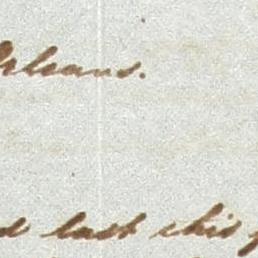 Orleans.
last this